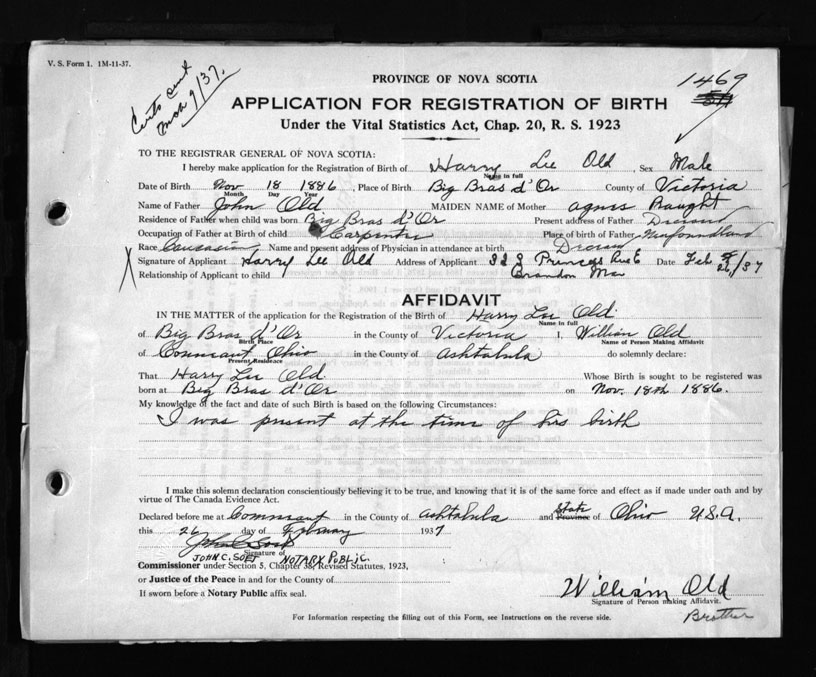 V. S. Form 1. 1M-11-37.
Certs sent
Mch 9/37.
PROVINCE OF NOVA SCOTIA
1469
APPLICATION FOR REGISTRATION OF BIRTH
Under the Vital Statistics Act, Chap. 20, R. S. 1923
TO THE REGISTRAR GENERAL OF NOVA SCOTIA:
I hereby make application for the Registration of Birth of Harry Lee Old, Sex Male
Name in full
Date of Birth Nov 18 1886, Place of Birth Big Bras d'Or County of Victoria
Month Day Year
Name of Father John Old MAIDEN NAME of Mother Agnes Naught
Residence of Father when child was born Big Bras d'Or Present address of Father Deceased
Occupation of Father at Birth of child Carpenter Place of birth of Father Newfoundland
Race Caucasian Name and present address of Physician in attendance at birth Deceased
Signature of Applicant Harry Lee Old Address of Applicant 328 Princess Ave E Date Feb 26/37
Relationship of Applicant to child Brandon Man
AFFIDAVIT
IN THE MATTER of the application for the Registration of the Birth of Harry Lee Old.
Name in full
of Big Bras d'Or in the County of Victoria I, William Old
Birth Place Name of Person Making Affidavit
of Conneaut Ohio in the County of Ashtabula do solemnly declare:
Present Residence
That Harry Lee Old. Whose Birth is sought to be registered was
born at Big Bras d'Or on Nov. 18th 1886.
My knowledge of the fact and date of such Birth is based on the following Circumstances:
I was present at the time of his birth
I make this solemn declaration conscientiously believing it to be true, and knowing that it is of the same force and effect as if made under oath and by
virtue of The Canada Evidence Act.
Declared before me at Conneaut in the County of Ashtabula and State Province of Ohio U.S.A.
this 26 day of February 1937
John C Soet
Signature of
JOHN C. SOET NOTARY PUBLIC.
Commissioner under Section 5, Chapter 38, Revised Statutes, 1923,
or Justice of the Peace in and for the County of
If sworn before a Notary Public affix seal.
William Old
Signature of Person making Affidavit.
Brother
For Information respecting the filling out of this Form, see Instructions on the reverse side.